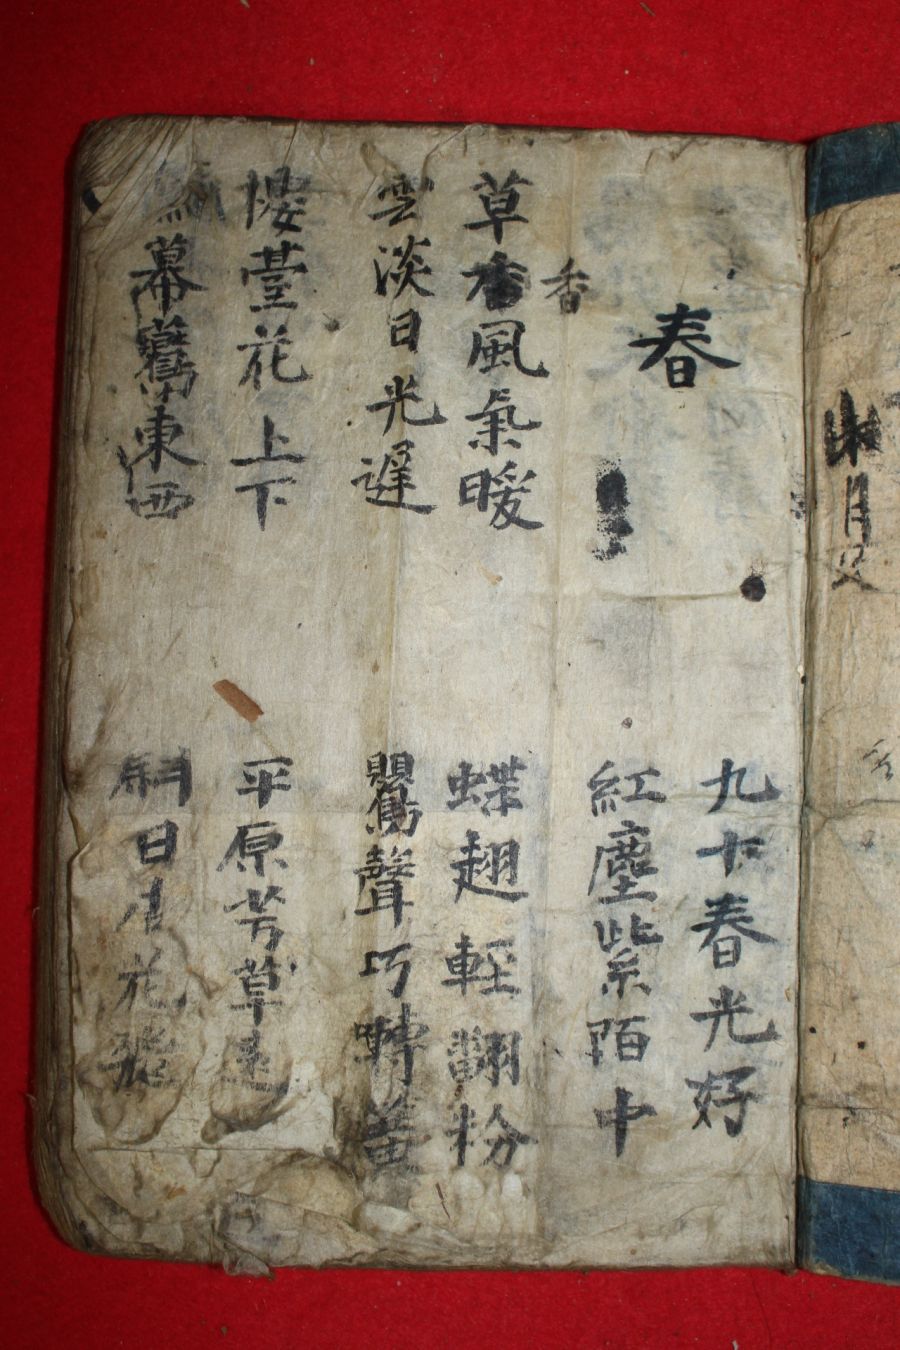 春
九十春光好
紅塵紫陌中
香
草香風氣暖
蝶翅輕翻粉
雲淡日光遲
鸎聲巧囀簧
樓臺花上下
平原芳草
幕鶯東西
斜日杏花發
月